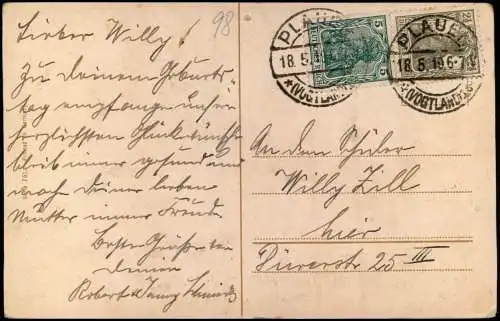 Lieber Willy!
98
Zu Deinem Geburts-
tag empfange unsere
herzlichsten Glückwünsche
bleib immer gesund und
mach Deiner lieben
Mutter immer Freude.
Beste Grüße von
Deinen
Robert u. Jenny
PLAUEN
18.5.
(VOGTLAND)
5
PLAUEN
18.5.18.6-7
(VOGTLAND)
An den Schüler
Willy Zill
hier
25 III